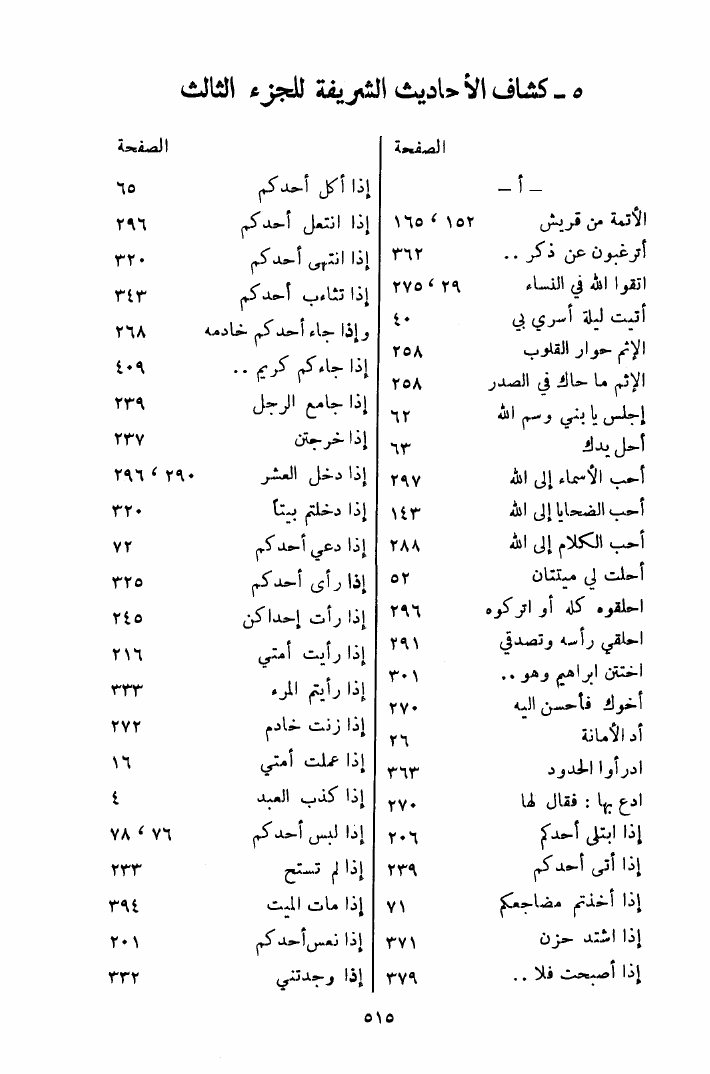 ٥ - كشاف الأحاديث الشريفة للجزء الثالث
الصفحة
- أ -
الأئمة من قريش ١٥٢ ، ١٦٥
أترغبون عن ذكر .. ٣٦٢
اتقوا الله في النساء ٢٩ ، ٢٧٥
أتيت ليلة أسري بي ٤٠
الإثم حوار القلوب ٢٥٨
الإثم ما حاك في الصدر ٢٥٨
إجلس يا بني وسم الله ٦٢
أحل يدك ٦٣
أحب الأسماء إلى الله ٢٩٧
أحب الضحايا إلى الله ١٤٣
أحب الكلام إلى الله ٢٨٨
أحلت لي ميتتان ٥٢
احلقوه كله أو اتركوه ٢٩٦
احلقي رأسه وتصدقي ٢٩١
اختتن ابراهيم وهو .. ٣٠١
أخوك فأحسن اليه ٢٧٠
أد الأمانة ٢٦
ادرأوا الحدود ٣٦٣
ادع بها : فقال لها ٢٧٠
إذا ابتلى أحدكم ٢٠٦
إذا أتى أحدكم ٢٣٩
إذا أخذتم مضاجعكم ٧١
إذا اشتد حزن ٣٧١
إذا أصبحت فلا .. ٣٧٩
الصفحة
إذا أكل أحدكم ٦٥
إذا انتعل أحدكم ٢٩٦
إذا انتهى أحدكم ٣٢٠
إذا تثاءب أحدكم ٣٤٣
وإذا جاء أحدكم خادمه ٢٦٨
إذا جاءكم كريم .. ٤٠٩
إذا جامع الرجل ٢٣٩
إذا خرجتن ٢٣٧
إذا دخل العشر ٢٩٠ ، ٢٩٦
إذا دخلتم بيتاً ٣٢٠
إذا دعي أحدكم ٧٢
إذا رأى أحدكم ٣٢٥
إذا رأت إحداكن ٢٤٥
إذا رأيت أمتي ٢١٦
إذا رأيتم المرء ٣٣٣
إذا زنت خادم ٢٧٢
إذا عملت أمتي ١٦
إذا كذب العبد ٤
إذا لبس أحدكم ٧٦ ، ٧٨
إذا لم تستح ٢٣٣
إذا مات الميت ٣٩٤
إذا نعس أحدكم ٢٠١
إذا وجدتني ٣٣٢
٥١٥